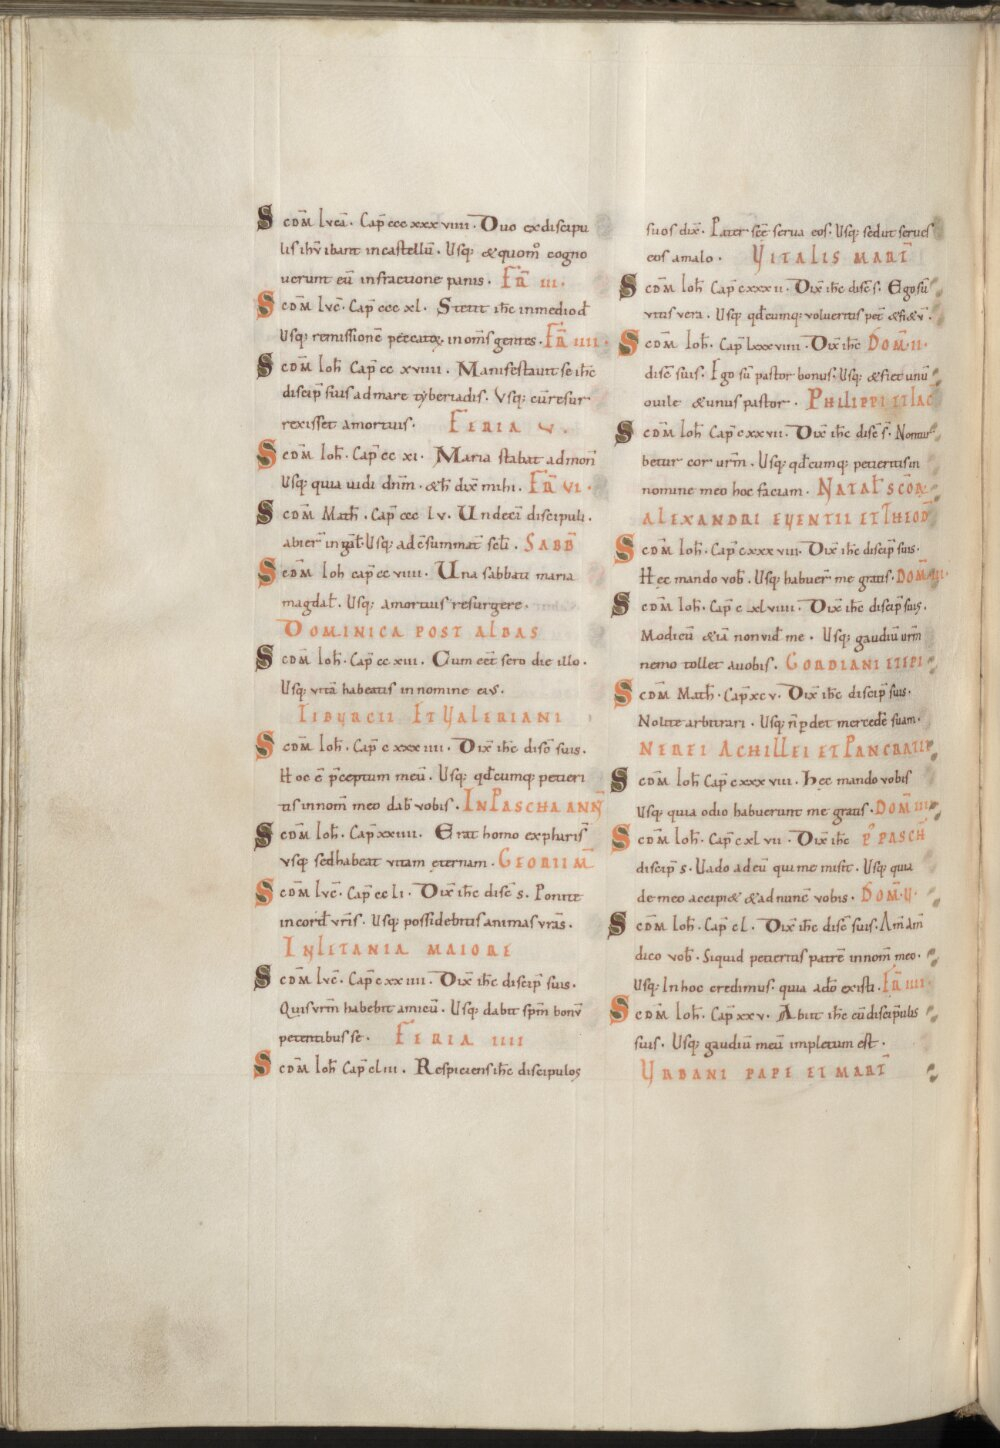 Scdm̄ lucā. Cap̄ ccc xxx viiii. Duo ex discipu
lis ihu ibant in castellū. Usq; & quom° cogno
uerunt eū in fractione panis. FR̄ III.
Scdm̄ luc̄. Cap̄ ccc xl. Stetit ihc in medio d
Usq; remissionē peccatoꝝ. in om̄s gentes. FR̄ IIII.
Scdm̄ Ioh̄ Cap̄ cc xviiii. Manifestauit se ihc
discip̄ suis ad mare tyberiadis. Usq; cū resur
rexisset amortuis. FERIA V.
Scdm̄ Ioh̄. Cap̄ cc xi. Maria stabat ad mon̄
Usq; quia uidi dn̄m. & h̄ dix̄ mihi. FR̄ VI.
Scdm̄ Math̄. Cap̄ ccc lv. Undeci discipuli.
abier̄ in gal̄. Usq; ad c̄summat̄ scl̄i. SABB̄
Scdm̄ Ioh cap̄ cc viiii. Una sabbati maria
magdal̄. Usq; a mortuis resurgere.
DOMINICA POST ALBAS
Scdm̄ Ioh̄. Cap̄ cc xiii. Cum eēt sero die illo.
Usq; uitā habeatis in nomine eius.
TIBURCII ET VALERIANI
Scdm̄ Ioh̄. Cap̄ c xxx iiii. Dix̄ ihc disc̄ suis.
Hoc ē p̄ceptum meū. Usq; qd̄cumq; petieri
tis in nom̄ meo dab̄ vobis. IN PASCHA ANN̄
Scdm̄ Ioh̄. Cap̄ xxiiii. Erat homo ex pharis̄
usq; sed habeat vitam eternam. GEORII M̄
Scdm̄ luc̄. Cap̄ cc li. Dix̄ ihc disc̄ s. Ponite
in cord̄ vr̄is. Usq; possidebitis animas vrās.
IN LETANIA MAIORE
Scdm̄ luc̄. Cap̄ c xx iiii. Dix̄ ihc discip̄ suis.
Quis vrm̄ habebit amicū. Usq; dabit spm̄ bonū
petentibus se. FERIA IIII
Scdm̄ Ioh̄ Cap̄ cliii. Respiciens ihc discipulos
suos dix̄. Pater sc̄e serua eos. Usq; sed ut serues
eos a malo. VITALIS MART̄
Scdm̄ Ioh̄ Cap̄ c xxx ii. Dix̄ ihc disc̄ s. Ego sū
vitis vera. Usq; qd̄cumq; volueritis pet̄ & fi& v̄.
Scdm̄ Ioh̄. Cap̄ lxxx viiii. Dix̄ ihc DOM̄. II.
disc̄ suis. Ego sū pastor bonus. Usq; & fiet unū
ouile & unus pastor. PHILIPPI ET IAC
Scdm̄ Ioh̄ Cap̄ c xx vii. Dix̄ ihc disc̄ s̄. Non tur
betur cor urm̄. Usq; qd̄cumq; petieritis in
nomine meo hoc faciam. NATAL̄ SCŌR
ALEXANDRI EVENTII ET THEOD̄
Scdm̄ Ioh̄. Cap̄ c xxx viii. Dix̄ ihc discip̄ suis.
Hec mando vob̄. Usq; habuer̄ me gratis. DOM̄ III.
Scdm̄ Ioh̄. Cap̄ c xl viiii. Dix̄ ihc discip̄ suis.
Modicū & iā non vid̄ me. Usq; gaudiū urm̄
nemo tollet a uobis. GORDIANI ET EPI
Scdm̄ Math̄. Cap̄ xc v. Dix̄ ihc discip̄ suis.
Nolite arbitrari. Usq; n̄ pdet mercedē suam.
NEREI ACHILLEI ET PANCRATII
Scdm̄ Ioh̄ Cap̄ c xxx viii. Hec mando vobis
Usq; quia odio habuerunt me gratis. DOM̄ IIII
Scdm̄ Ioh̄. Cap̄ c xl vii. Dix̄ ihc P° PASCH̄
discip̄ s. Uado ad eū qui me misit. Usq; quia
de meo accipi& & adnunc̄ vobis. DOM̄. V.
Scdm̄ Ioh̄. Cap̄ cl. Dix̄ ihc disc̄ suis. Am̄ am̄
dico vob̄. Siquid petieritis patrē in nom̄ meo.
Usq; In hoc credimus. quia a dō existi. FR̄ IIII.
Scdm̄ Ioh̄. Cap̄ xx v. Abiit ihc cū discipulis
suis. Usq; gaudiū meū impletum est.
URBANI PAPE ET MART̄